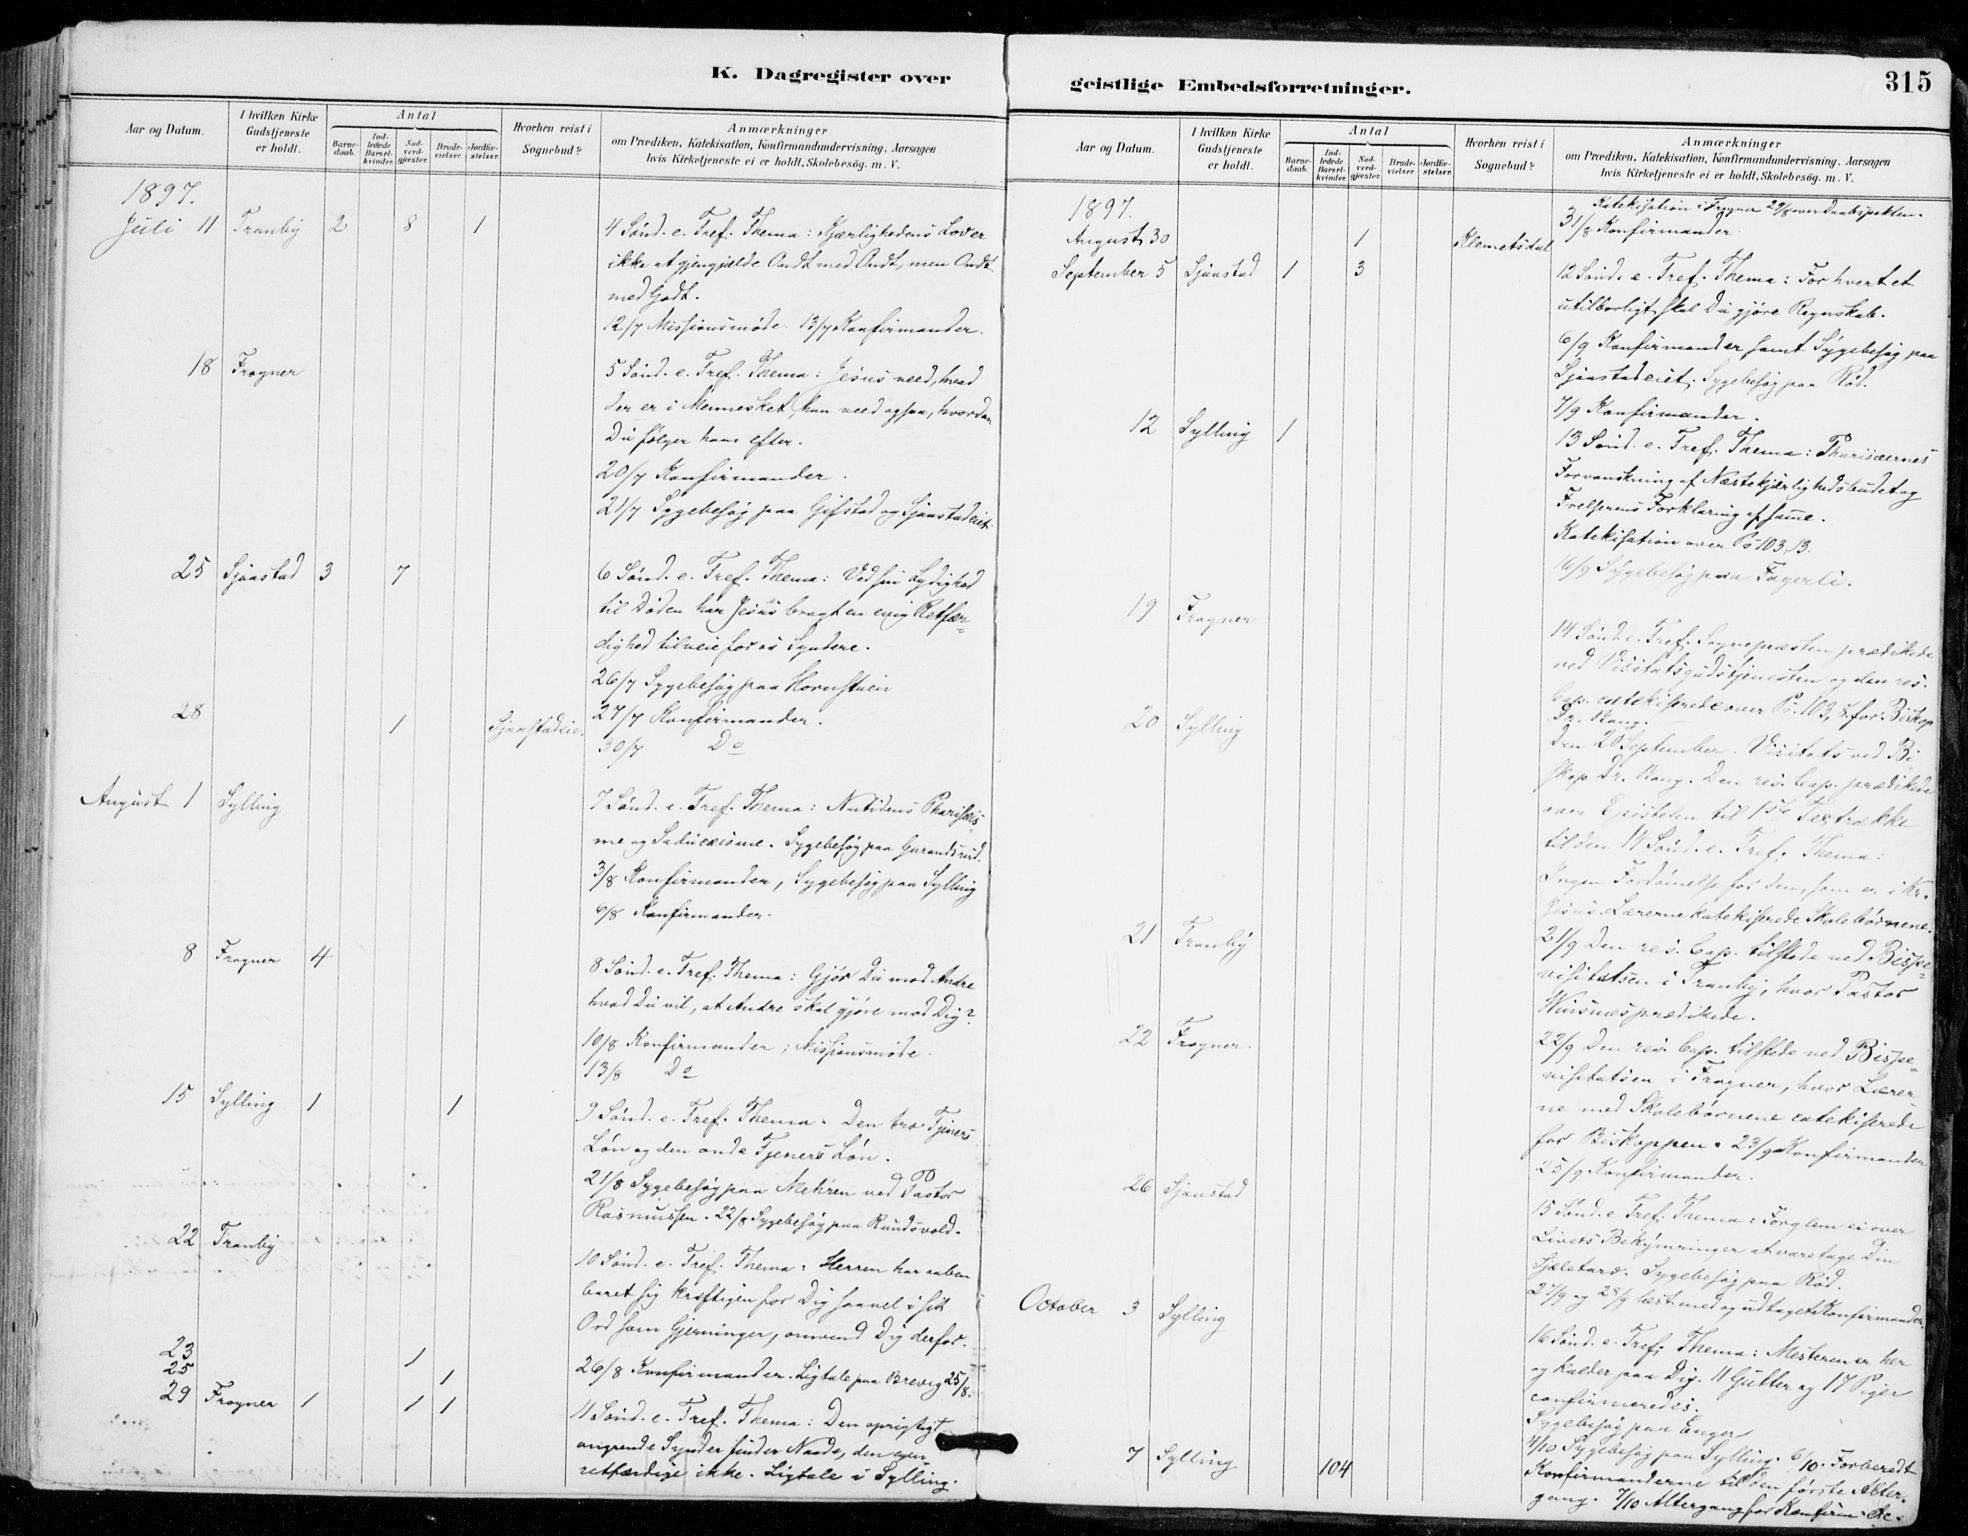 K. Dagregister over
Aar og Datum.
I hvilken Kirke Gudstjeneste er holdt.
Antal
Barnedaab.
Indledede Barselkvinder.
Nadverdgjester.
Brudevielser.
Jordfæstelser.
Hvorhen reist i Sognebud?
Anmærkninger
om Prædiken, Katekisation, Konfirmandundervisning, Aarsagen
hvis Kirketjeneste ei er holdt, Skolebesøg. m. V.
1897.
Juli 11 Tranby 2 8 1 4 Sønd. e. Tref. Thema: Kjærlighedens Lov er
ikke at gjengjelde Ondt med Ondt, men Ondt
med Godt.
12/7 Missionsmøde. 13/7 Konfirmander.
18 Frogner 5 Sønd. e. Tref. Thema: Jesus veed, hvad
der er i Mennesket, han veed ogsaa, hvordan
Du følger ham efter.
20/7 Konfirmander.
21/7 Sygebesøg paa Gifstad og Sjaastadeiet.
25 Sjaastad 3 7 6 Sønd. e. Tref. Thema: Ved sin Lydighed
til Døden har Jesus bragt en evig Retfær=
dighed tilveie for os Syndere.
26/7 Sygebesøg paa Hornstuen
27/7 Konfirmander.
28 1 Sjaastadeie.
30/7 Do
August 1 Sylling 7 Sønd. e. Tref. Thema: Nutidens Pharisæis=
me og Saducæisme. Sygebesøg paa Gurandsrud.
3/8 Konfirmander, Sygebesøg paa Sylling
6/8 Konfirmander.
8 Frogner 4 8 Sønd. e. Tref. Thema: Gjør Du mod Andre
hvad Du vil, at Andre skal gjøre mod Dig?
10/8 Konfirmander; Missionsmøde.
13/8 Do
15 Sylling 1 1 9 Sønd. e. Tref. Thema. Den tro Tjeners
Løn og den onde Tjeners Løn.
21/8 Sygebesøg paa Mehren ved Pastor
Rasmussen. 22/8 Sygebesøg paa Rundsvold.
22 Tranby 10 Sønd. e. Tref. Thema: Herren har aaben
baret sig kraftigen for Dig saavel i sit
Ord som Gjerninger, omvend Dig derfor.
23 1
25 1 26/8 Konfirmander. Ligtale paa Brevig 25/8.
29 Frogner 1 1 1 11 Sønd. e. Tref. Thema: Den oprigtigt
angrende Synder finder Naade, den egen=
retfærdige ikke. Ligtale i Sylling.
geistlige Embedsforretninger.
315
Aar og Datum.
I hvilken Kirke Gudstjeneste er holdt.
Antal
Barnedaab.
Indledede Barselkvinder.
Nadverdgjester.
Brudevielser.
Jordfæstelser.
Hvorhen reist i Sognebud?
Anmærkninger
om Prædiken, Katekisation, Konfirmandundervisning, Aarsagen
hvis Kirketjeneste ei er holdt, Skolebesøg. m. V.
1897.
Katekisation i Frogner 29/8 over Daabspakten.
31/8 Konfirmander.
August 30 1 Klemetsdal
September 5 Sjaastad 1 3 12 Sønd. e. Tref. Thema: For hvert et
utilborligt skal Du gjøre Regnskab.
6/9 Konfirmander samt Sygebesøg paa
Sjaastadeiet; Sygebesøg paa Rød.
7/9 Konfirmander.
12 Sylling 1 13 Sønd. e. Tref. Thema: Pharisæernes
Forvanskning af Næstekjærlighedsbudet og
Frelserens Forklaring af samme.
Katekisation over Ps 103, 13.
16/9 Sygebesøg paa Fagerli.
19 Frogner 14 Sønd. e. Tref. Sognepræsten prædikede
ved Visitatsgudstjenesten og den res.
Cap. catekiserede over Ps. 103, 8. for Biskop
Dr. Bang.
20 Sylling Den 20 September. Visitats ved Bi
skop Dr. Bang. Den res. Cap. prædikede
over Epistelen til 1ste Textrække
til den 14 Sønd. e. Tref. Thema:
Ingen Fordømelse for dem, som er i Kr.
Jesus. Lærerne katekiserede Skolebørnene.
21 Tranby 21/9 Den res. Cap. tilstede ved Bispe=
visitatsen i Tranby, hvor Pastor
prædikede.
22 Frogner. 22/9 Den res. Cap. tilstede ved Bispe=
visitatsen i Frogner, hvor Lærer=
ne med Skolebørnene catekiserede
for Biskoppen. 23/9 Konfirmander
25/9 Konfirmander.
26 Sjaastad 15 Sønd. e. Tref. Thema: Forglem ei over
Livets Bekymringer at varetage Din
Sjæletarv. Sygebesøg paa Rød.
27/9 og 28/9 læst med og udtaget Konfirmander.
October 3 Sylling 16 Sønd. e. Tref. Thema: Mesteren er her
og kalder paa Dig. 11 Gutter og 17 Piger
confirmeredes.
Sygebesøg paa Enger
4/10 Sygebesøg paa Sylling. 6/10. Forberedt
7 Sylling 104 Konfirmanderne til den første Alter=
gang. 7/10 Altergang for Konfirm. &c.